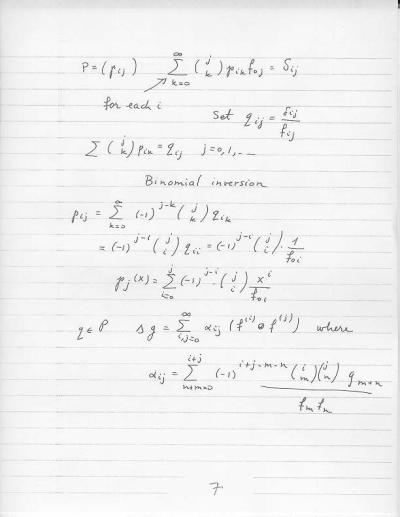 P = (p_{ij})   \sum_{k=0}^{\infty} \binom{j}{k} p_{ik} f_{0j} = δ_{ij}
for each i
Set q_{ij} = \frac{δ_{ij}}{f_{ij}}
\sum \binom{j}{k} p_{ik} = q_{ij}   j=0,1,...
Binomial inversion
p_{ij} = \sum_{k=0}^{\infty} (-1)^{j-k} \binom{j}{k} q_{ik}
= (-1)^{j-i} \binom{j}{i} q_{ii} = (-1)^{j-i} \binom{j}{i} \cdot \frac{1}{f_{0i}}
p_j(x) = \sum_{i=0}^{j} (-1)^{j-i} \binom{j}{i} \frac{x^i}{f_{0i}}
q ∈ P   Δg = \sum_{i,j=0}^{\infty} α_{ij} (f^{(i)} ⊗ f^{(j)})   where
α_{ij} = \sum_{n+m=0}^{i+j} (-1)^{i+j-m-n} \frac{\binom{i}{m} \binom{j}{n} g_{m+n}}{f_m f_n}
7